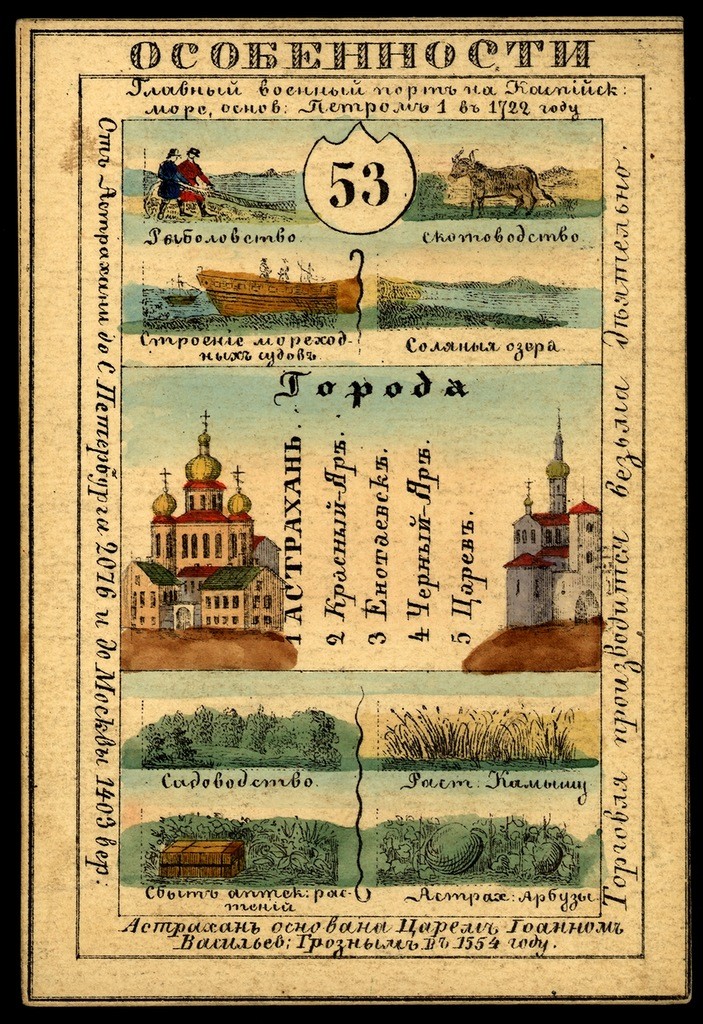 ОСОБЕННОСТИ
Главный военный портъ на Каспійск:
море, основ: Петромъ 1 въ 1722 году
53
Рыболовство.
скотоводство.
Строеніе мореход-
ныхъ судовъ
Соляныя озера.
Города
1 АСТРАХАНЬ.
2 Красный-Яръ.
3 Енотаевскъ.
4 Черный-Яръ.
5 Царевъ.
Садоводство.
Раст: Камышу
Сбытъ аптек: рас-
теній
Астрах: Арбузы.
Астрахань основана Царемъ Іоанномъ
Васильев: Грознымъ. въ 1554 году.
Отъ Астрахани до С Петербурга 2076 и до Москвы 1403 вер:
Торговля производится весьма дѣятельно.